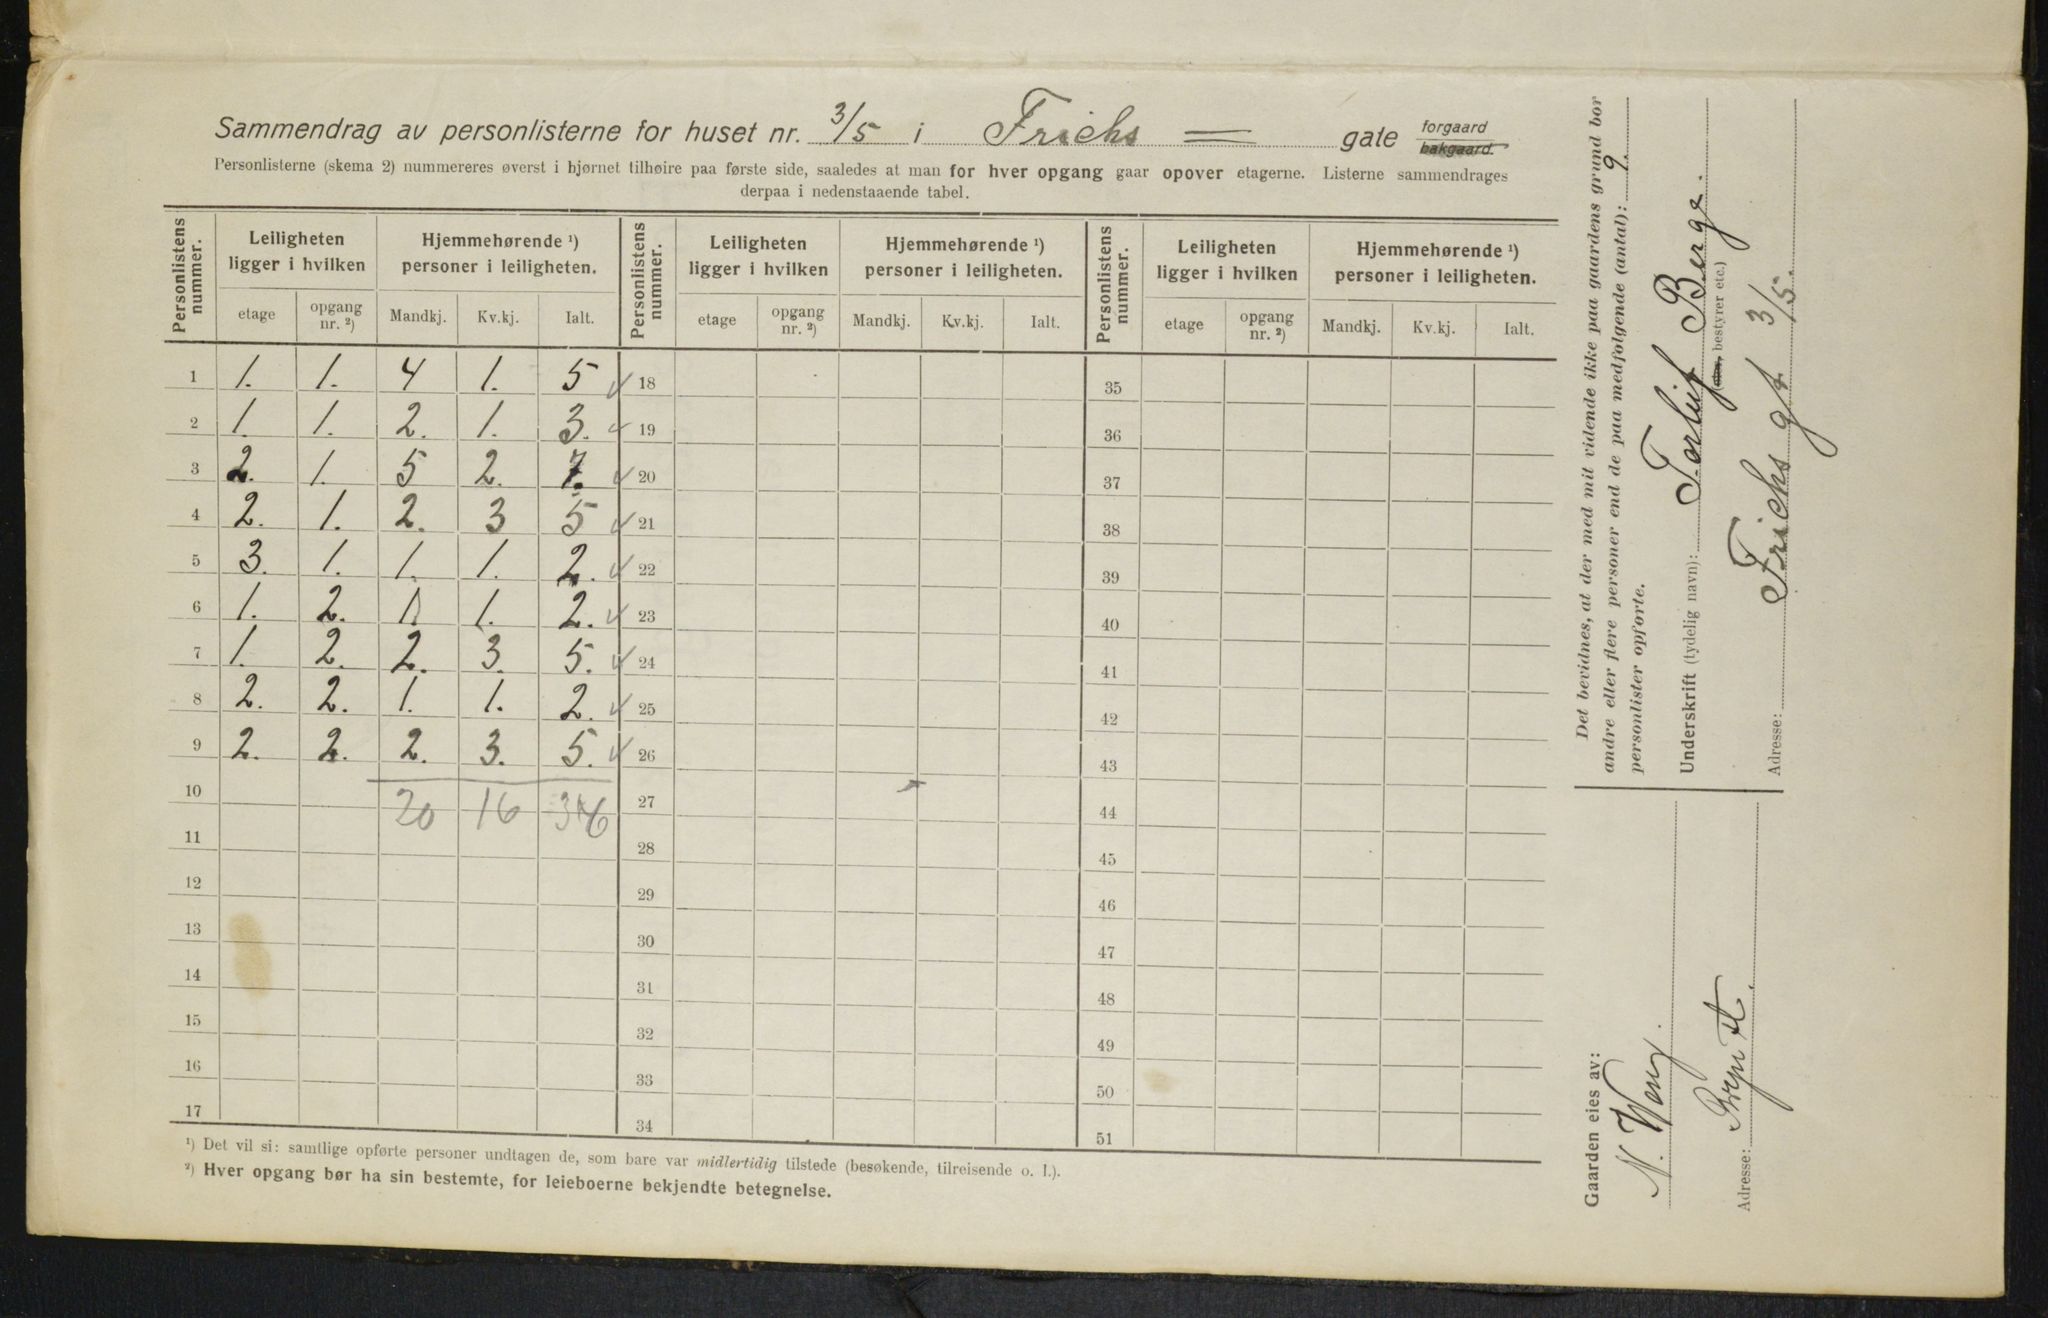 Sammendrag av personlisterne for huset nr. 3/5 i Frichs — gate forgaard bakgaard.
Personlisterne (skema 2) nummereres øverst i hjørnet tilhøire paa første side, saaledes at man for hver opgang gaar opover etagerne. Listerne sammendrages
derpaa i nedenstaaende tabel.
Personlistens nummer. Leiligheten ligger i hvilken Hjemmehørende ¹) personer i leiligheten. Personlistens nummer. Leiligheten ligger i hvilken Hjemmehørende ¹) personer i leiligheten. Personlistens nummer. Leiligheten ligger i hvilken Hjemmehørende ¹) personer i leiligheten.
etage opgang nr. ²) Mandkj. Kv.kj. Ialt. etage opgang nr. ²) Mandkj. Kv.kj. Ialt. etage opgang nr. ²) Mandkj. Kv.kj. Ialt.
1 1. 1. 4 1. 5 ✓ 18 35
2 1. 1. 2. 1. 3. ✓ 19 36
3 2. 1. 5 2. 7. ✓ 20 37
4 2. 1. 2. 3 5 ✓ 21 38
5 3. 1. 1. 1. 2. ✓ 22 39
6 1. 2. 1 1. 2. ✓ 23 40
7 1. 2. 2. 3. 5. ✓ 24 41
8 2. 2. 1. 1. 2. ✓ 25 42
9 2. 2. 2. 3. 5. ✓ 26 43
10 20 16 36 27 44
11 28 45
12 29 46
13 30 47
14 31 48
15 32 49
16 33 50
17 34 51
¹) Det vil si: samtlige opførte personer undtagen de, som bare var midlertidig tilstede (besøkende, tilreisende o. l.).
²) Hver opgang bør ha sin bestemte, for leieboerne bekjendte betegnelse.
Det bevidnes, at der med mit vidende ikke paa gaardens grund bor
andre eller flere personer end de paa medfølgende (antal): 9.
personlister opførte.
Underskrift (tydelig navn): Torleif Berge.
(eier, bestyrer etc.)
Adresse: Frichs gt 3/5.
Gaarden eies av:
N. Weny.
Adresse: